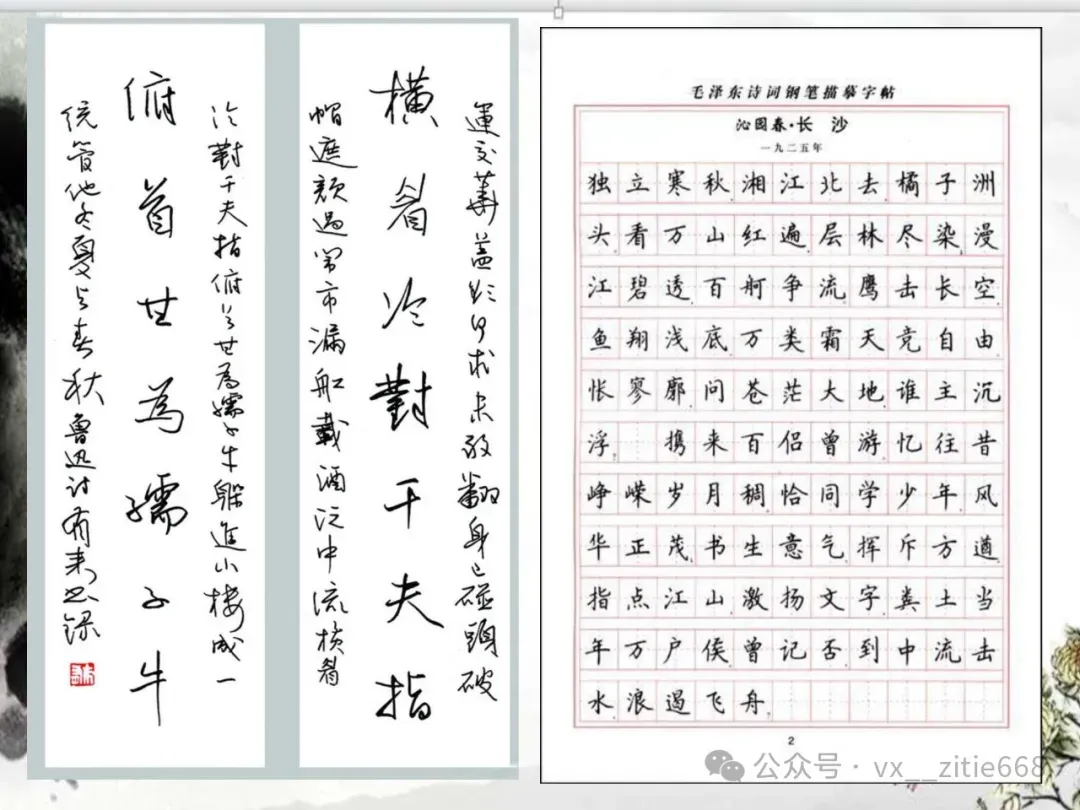 運交華蓋欲何求未敢翻身已碰頭破
横眉冷對千夫指
帽遮顏過鬧市漏船載酒泛中流横眉
冷對千夫指俯首甘為孺子牛躲進小樓成一
俯首甘為孺子牛
統管他冬夏与春秋魯迅诗
毛泽东诗词钢笔描摹字帖
沁园春·长 沙
一九二五年
独立寒秋,湘江北去,橘子洲
头看万山红遍,层林尽染;漫
江碧透,百舸争流鹰击长空,
鱼翔浅底,万类霜天竞自由。
怅寥廓,问苍茫大地,谁主沉
浮? 携来百侣曾游,忆往昔
峥嵘岁月稠。恰同学少年,风
华正茂;书生意气,挥斥方遒。
指点江山,激扬文字,粪土当
年万户侯。曾记否,到中流击
水,浪遏飞舟?
2
公众号 · vx__zitie668